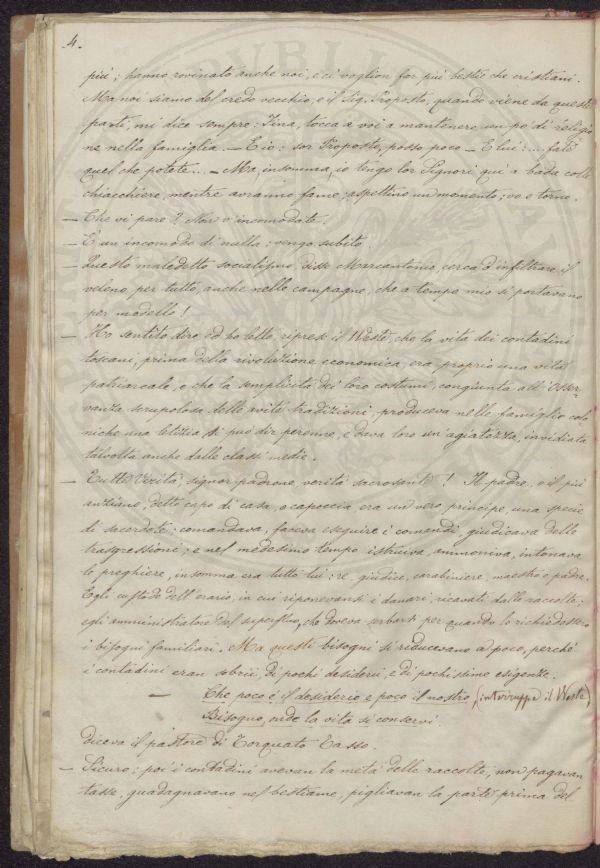 4.
più; hanno rovinato anche noi, e ci voglion far più bestie che cristiani.
Ma noi siamo del credo vecchio, e il Sig. Proposto, quando viene da queste
parti, mi dice sempre: Tina, tocca a voi a mantenere un po' di religio
ne nella famiglia. — E io: sor Proposto, posso poco — E lui: .... fate
quel che potete... — Ma, insomma, io tengo lor Signori qui a bada colle
chiacchiere, mentre avranno fame; aspettino un momento; vo e torno.
— Che vi pare? Non v'incomodate.
— È un incomodo di nulla; vengo subito.
— Questo maledetto socialismo, disse Marcantonio, cerca d'infiltrare il
veleno per tutto, anche nelle campagne, che a tempo mio si portavano
per modello!
— Ho sentito dire ed ho letto, riprese il Weste, che la vita dei contadini
toscani, prima della rivoluzione economica, era proprio una vita
patriarcale, e che la semplicità de' loro costumi, congiunta all'osser-
vanza scrupolosa delle avite tradizioni, produceva nelle famiglie colo
niche una letizia si può dir perenne, e dava loro un'agiatezza, invidiata
talvolta anche dalle classi medie.
— Tutte verità, signor padrone, verità sacrosante! Il padre, o il più
anziano, detto capo di casa, o capoccia era un vero principe, una specie
di sacerdote; comandava, faceva eseguire i comandi, giudicava delle
trasgressioni; e nel medesimo tempo istruiva, ammoniva, intonava
le preghiere, insomma era tutto lui: re, giudice, carabiniere, maestro e padre.
Egli custode dell'erario, in cui riponevansi i danari, ricavati dalle raccolte;
egli amministratore del superfluo, che doveva serbarsi per quando lo richiedessero
i bisogni familiari. Ma questi bisogni si riducevano a poco, perchè
i contadini eran sobrii, di pochi desiderii e di pochissime esigenze.
— Che poco è il desiderio e poco il nostro (interruppe il Weste)
Bisogno, onde la vita si conservi.
diceva il pastore di Torquato Tasso.
— Sicuro; poi i contadini avevan la metà delle raccolte, non pagavan
tasse, guadagnavano nel bestiame, pigliavan la parte prima del